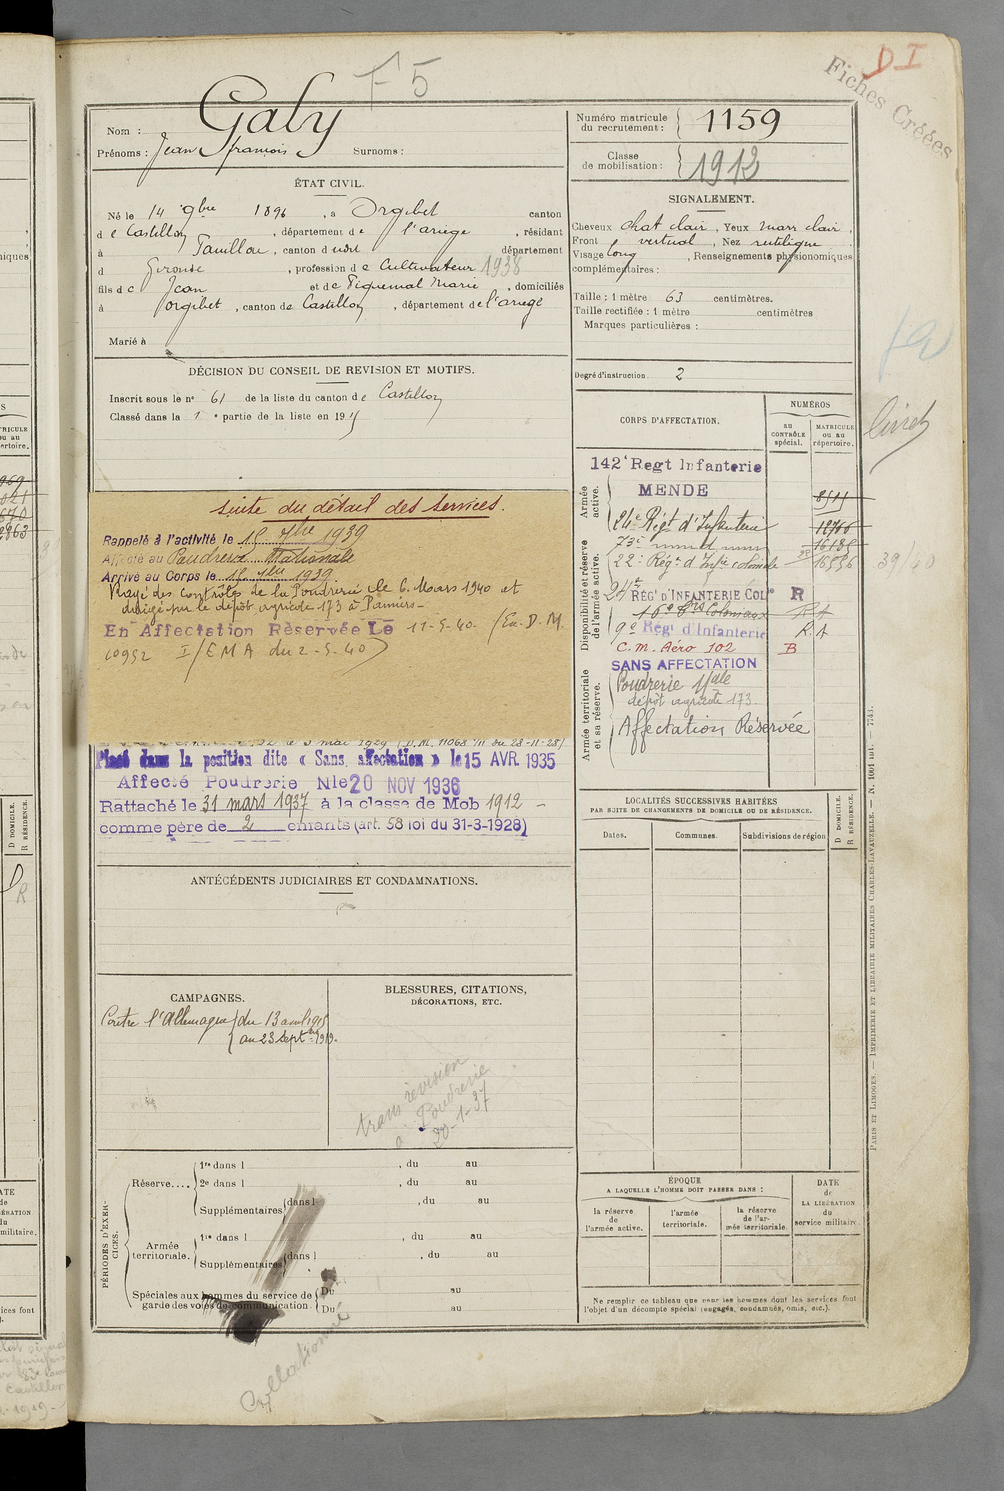 F5
DI
Fiches Créées
Nom : Galy
Prénoms : Jean françois Surnoms :
Numéro matricule du recrutement : 1159
Classe de mobilisation : 1912
ÉTAT CIVIL.
Né le 14 9bre 1896, à Orgibet canton
d e Castillon, département de l'ariège, résidant
à Pauillac, canton d udit département
d Gironde, profession d e Cultivateur 1938
fils d e Jean et de Piquemal Marie, domiciliés
à orgibet, canton de Castillon, département de l'ariège
Marié à
SIGNALEMENT.
Cheveux chat clair, Yeux marr clair,
Front vertical, Nez rectiligne
Visage long, Renseignements physionomiques
complémentaires :
Taille : 1 mètre 63 centimètres.
Taille rectifiée : 1 mètre centimètres
Marques particulières :
Degré d'instruction 2
DÉCISION DU CONSEIL DE REVISION ET MOTIFS.
Inscrit sous le n° 61 de la liste du canton de Castillon
Classé dans la 1e partie de la liste en 1915
suite du détail des services.
Rappelé à l'activité le 15 7bre 1939
Affecté au Poudrerie Nationale
Arrivé au Corps le 15 7bre 1939
Rayé des Contrôles de la Poudrerie le 6 Mars 1940 et
dirigé sur le dépôt agricole 173 à Pamiers
En Affectation Réservée Le 11-5-40. (Ex. D.M.
10952 I/EMA du 2-5-40)
le 3 mai 1929 (D.M. 11068 /11 du 28-11-28)
Placé dans la position dite « Sans affectation » le 15 AVR. 1935
Affecté Poudrerie Nle 20 NOV 1936
Rattaché le 31 mars 1937 à la classe de Mob 1912 -
comme père de 2 enfants (art. 58 loi du 31-3-1928)
CORPS D'AFFECTATION.
NUMÉROS
AU CONTRÔLE spécial.
MATRICULE ou au répertoire.
Armée active.
142e Regt Infanterie
MENDE
Disponibilité et réserve de l'armée active.
24e Régt d'Infanterie
22e Rég. d'Infie coloniale 16536
24e RÉGt D'INFANTERIE COLe R
16e Coloniaux R.A
9e Régt d'Infanterie R.A
C.M. Aéro 102 B
SANS AFFECTATION
Armée territoriale et sa réserve.
Poudrerie Nale
dépôt agricole 173.
Affectation Réservée
livret
39/40
LOCALITÉS SUCCESSIVES HABITÉES
PAR SUITE DE CHANGEMENTS DE DOMICILE OU DE RÉSIDENCE.
Dates. Communes. Subdivisions de région
D DOMICILE.
R RÉSIDENCE.
ANTÉCÉDENTS JUDICIAIRES ET CONDAMNATIONS.
CAMPAGNES.
Contre l'Allemagne du 13 avril 1915
au 23 septbre 1919.
BLESSURES, CITATIONS,
DÉCORATIONS, ETC.
trans révision
à Poudrerie
30-1-37
PÉRIODES D'EXERCICES.
Réserve.... 1re dans l , du au
2e dans l , du au
Supplémentaires dans l , du au
Armée territoriale. 1re dans l , du au
Supplémentaires dans l , du au
Spéciales aux hommes du service de garde des voies de communication. Du au
Du au
Collationné
ÉPOQUE
A LAQUELLE L'HOMME DOIT PASSER DANS :
la réserve de l'armée active.
l'armée territoriale.
la réserve de l'armée territoriale.
DATE de LA LIBÉRATION du service militaire.
Ne remplir ce tableau que pour les hommes dont les services font
l'objet d'un décompte spécial (engagés, condamnés, omis, etc.).
PARIS ET LIMOGES. — IMPRIMERIE ET LIBRAIRIE MILITAIRES CHARLES-LAVAUZELLE. — N. 1001 int. — 7743.